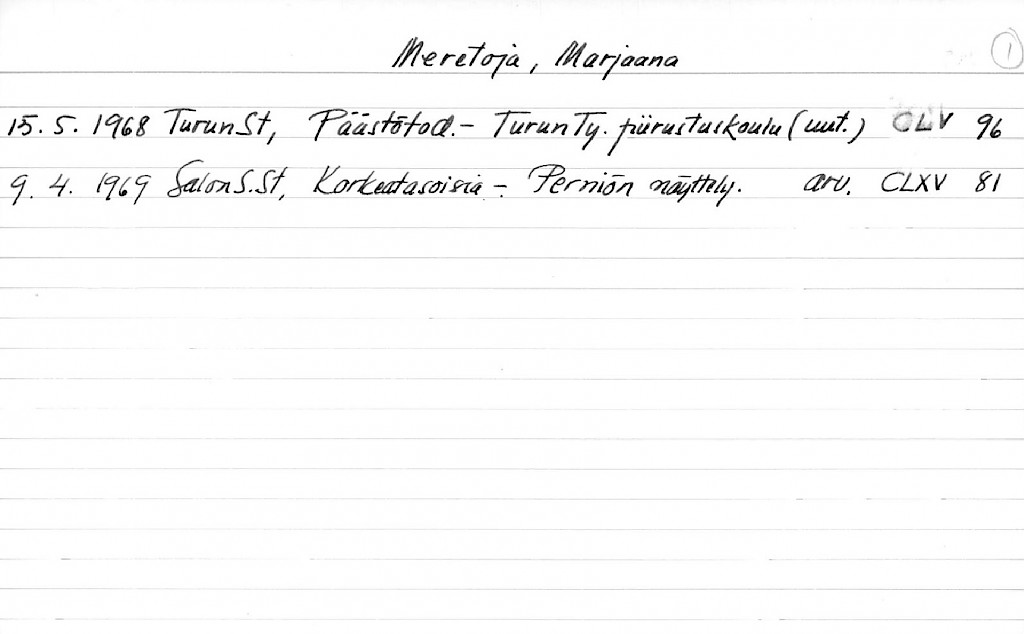 Meretoja, Marjaana 1
15. 5. 1968 Turun St, Päästötod. - Turun Ty. piirustuskoulu (uut.) CLV 96
9. 4. 1969 Salon S. St, Korkeatasoisia - Perniön näyttely. arv. CLXV 81